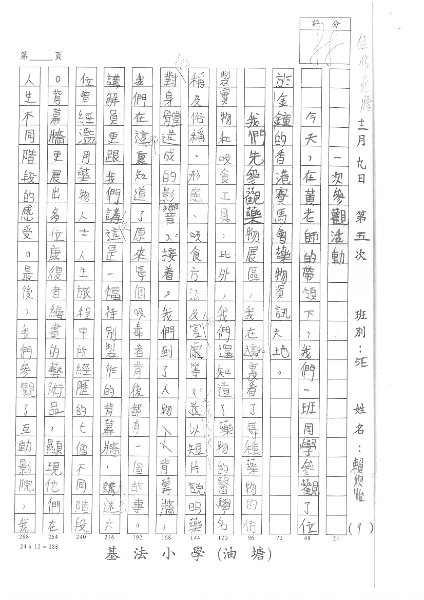 評分
十二月九日 第五次 班別：5E 姓名：賴
(9)
一次參觀活動
今天，在黃老師的帶領下，我們一班同學參觀了位
於金鐘的香港賽馬會藥物資訊天地。
我們先參觀藥物展區，我在這裏看了各種藥物的仿
製實物和吸食工具，此外，我們還知道了藥物的醫學名
稱及俗稱、形態、吸食方法及害處等，以短片說明藥
對身體造成的影響。接着，我們到了人物背幕牆，
我們在這裏知道了原來每個吸毒者背後都有一個故事。
講解員更跟我們講這是一幅特別製作的背幕牆，講述六
位曾經濫用藥物人士人生旅程中所經歷的七個不同階段
。背幕牆更展出多位康復者繪畫的藝術品，顯現他們在
人生不同階段的感受。最後，我們參觀了互動影院，我
第____頁
24 48 72 96 120 144 168 192 216 240 264 288
24 x 12 = 288
基法小學(油塘)